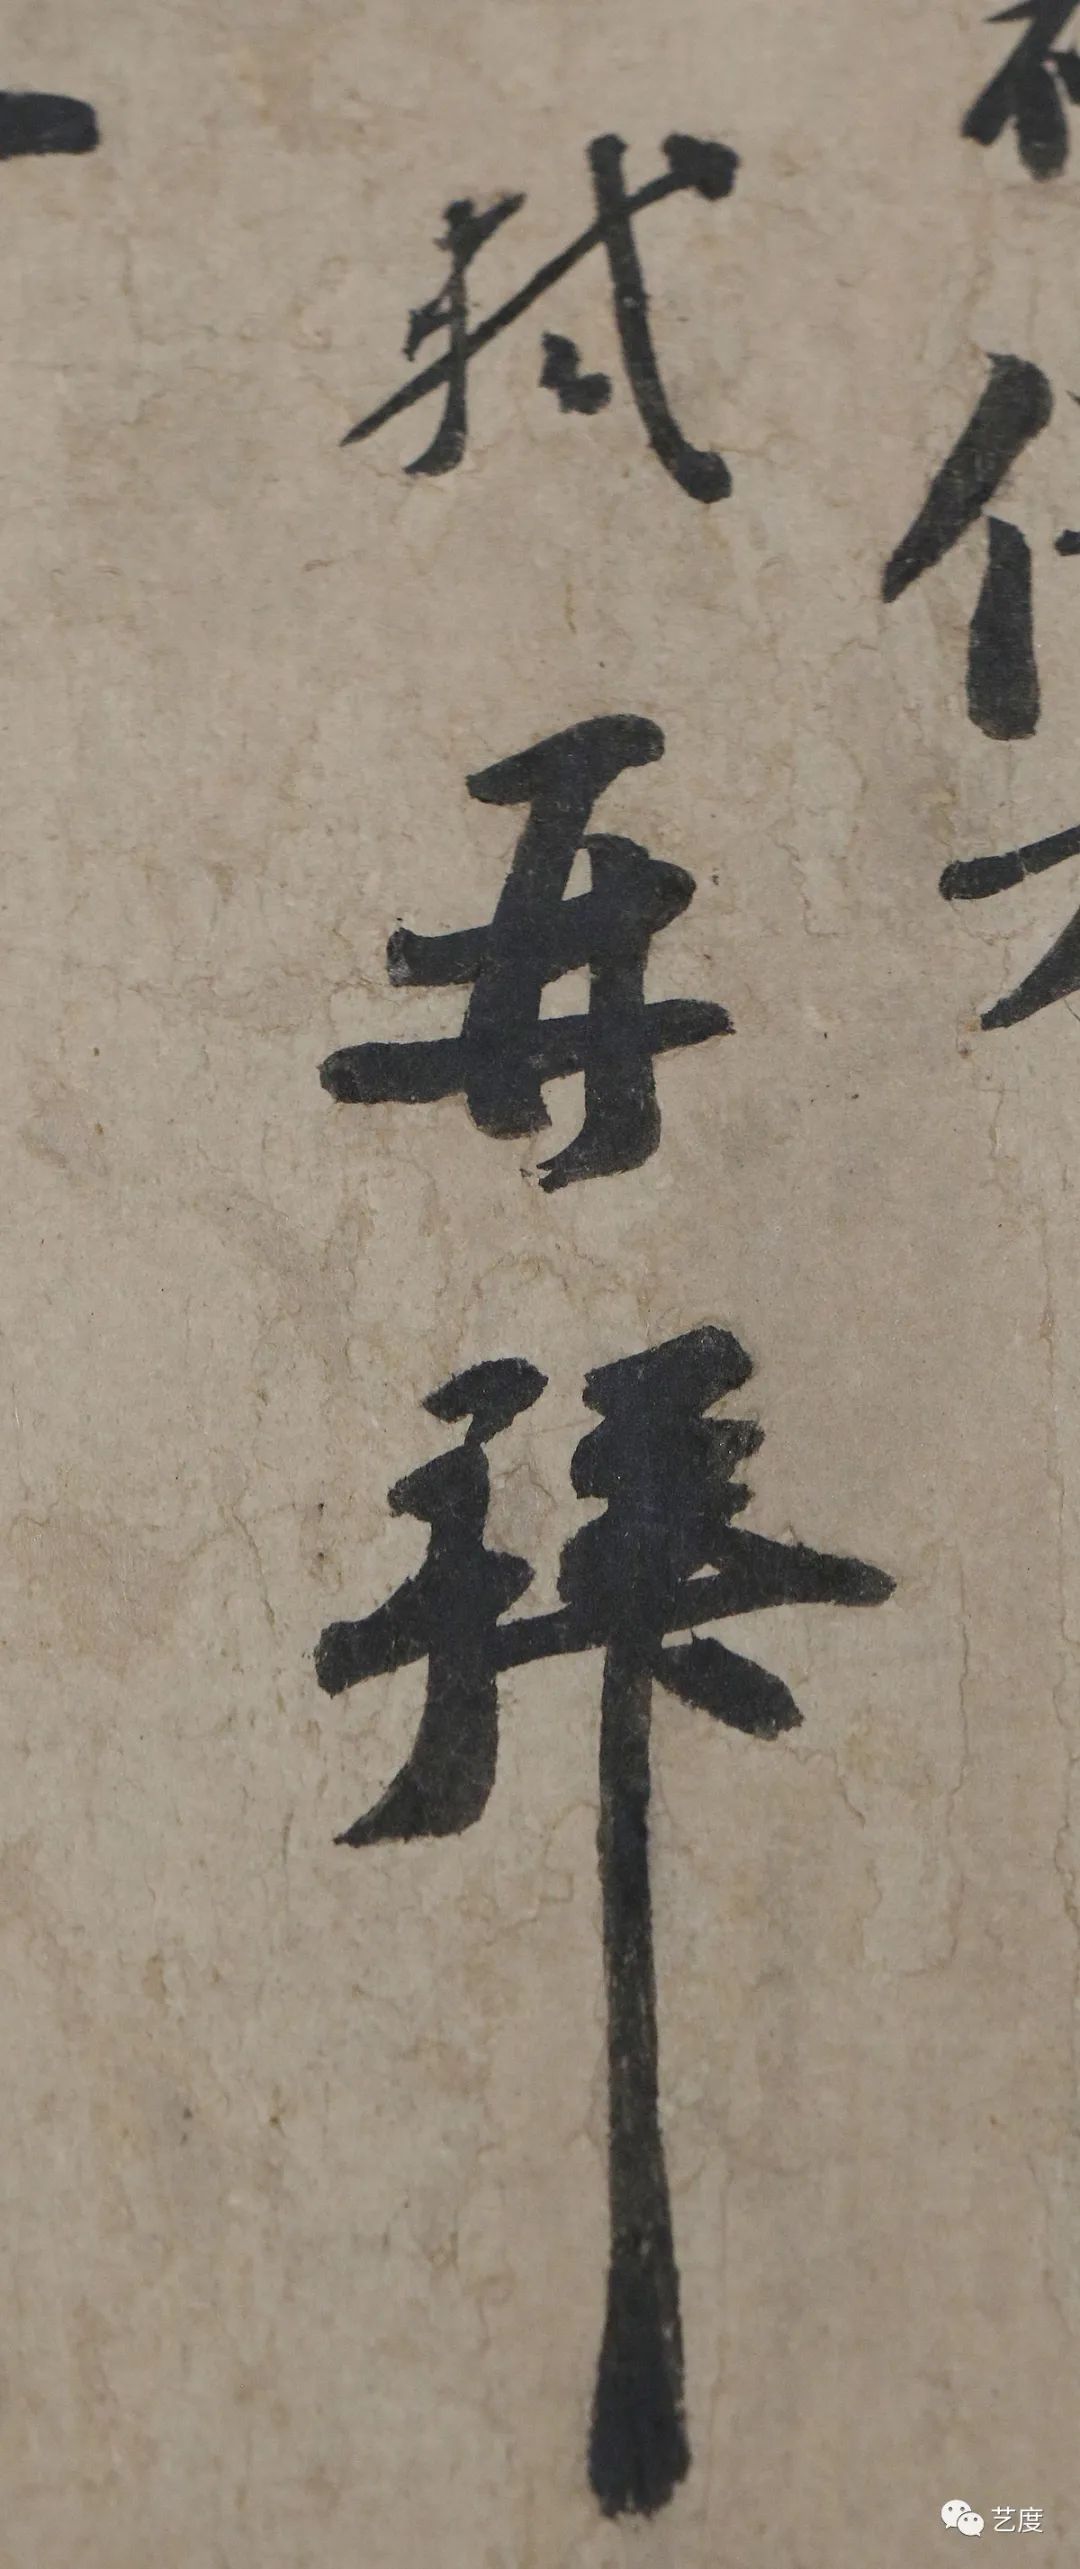 軾再拜
一
艺度